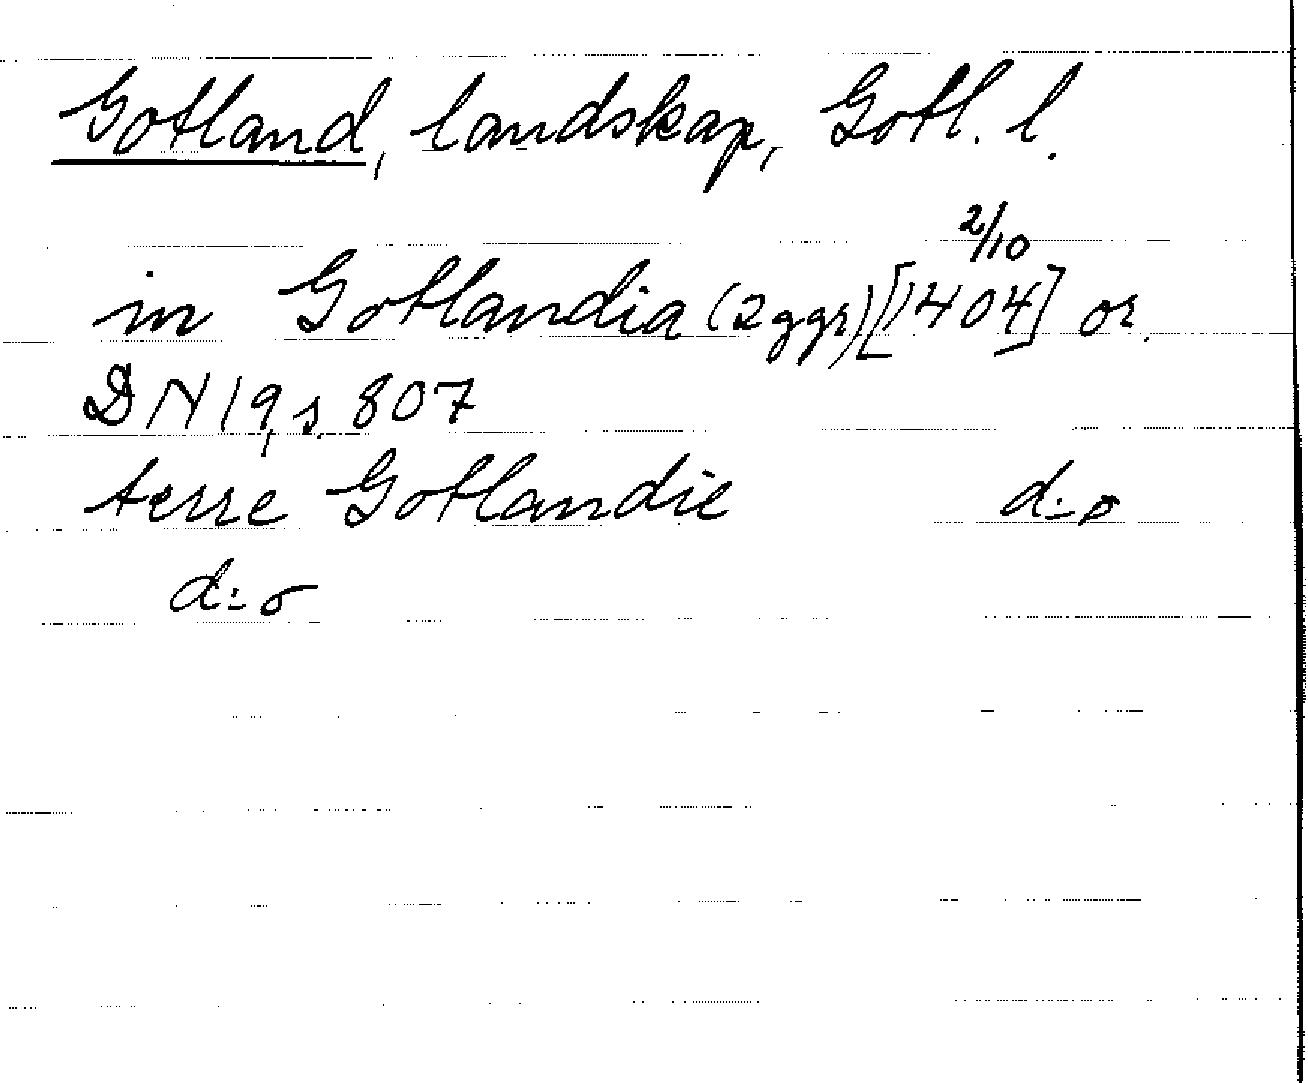 Gotland, landskap, Gotl. l.
2/10
in Gotlandia (2 ggr) [1404] or.
DN 19, s. 807
terre Gotlandie d:o
d:o